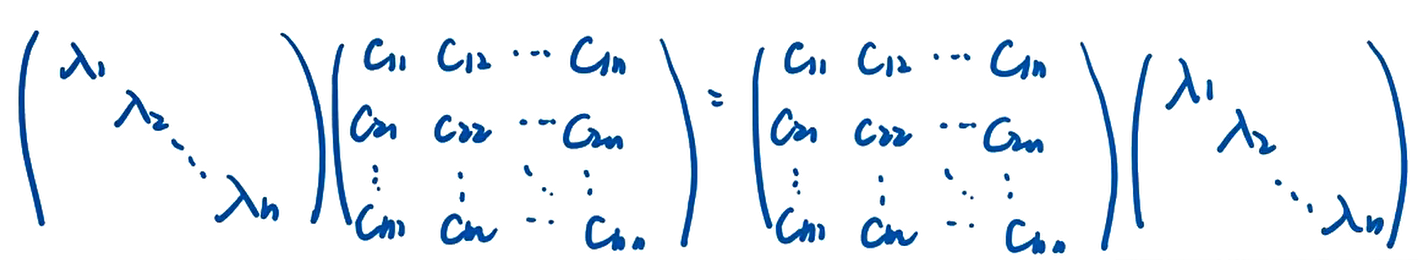 $$\begin{pmatrix} \lambda_1 & & & \\ & \lambda_2 & & \\ & & \ddots & \\ & & & \lambda_n \end{pmatrix} \begin{pmatrix} C_{11} & C_{12} & \cdots & C_{1n} \\ C_{21} & C_{22} & \cdots & C_{2n} \\ \vdots & \vdots & \ddots & \vdots \\ C_{n1} & C_{n2} & \cdots & C_{nn} \end{pmatrix} = \begin{pmatrix} C_{11} & C_{12} & \cdots & C_{1n} \\ C_{21} & C_{22} & \cdots & C_{2n} \\ \vdots & \vdots & \ddots & \vdots \\ C_{n1} & C_{n2} & \cdots & C_{nn} \end{pmatrix} \begin{pmatrix} \lambda_1 & & & \\ & \lambda_2 & & \\ & & \ddots & \\ & & & \lambda_n \end{pmatrix}$$